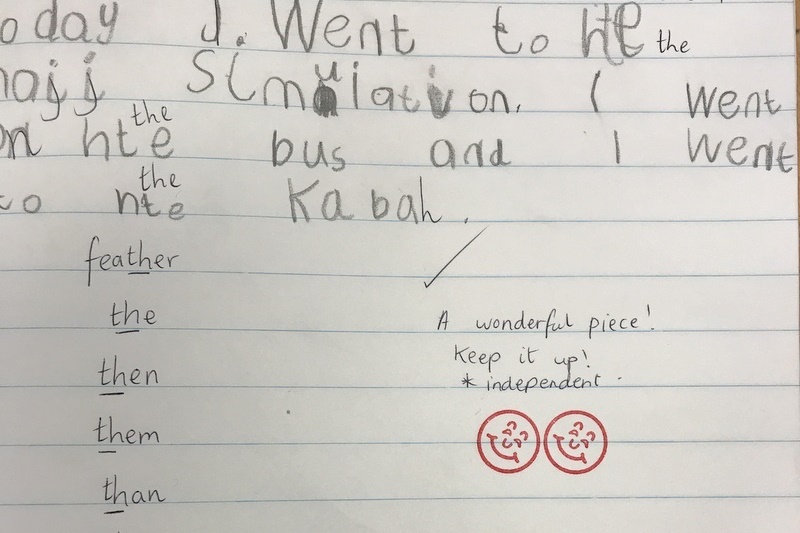 oday I. Went to Hte the
hajj Simulation. I went
the
on hte bus and I went
the
to hte Kabah.
feather
the
then
A wonderful piece!
Keep it up!
* independent.
them
than